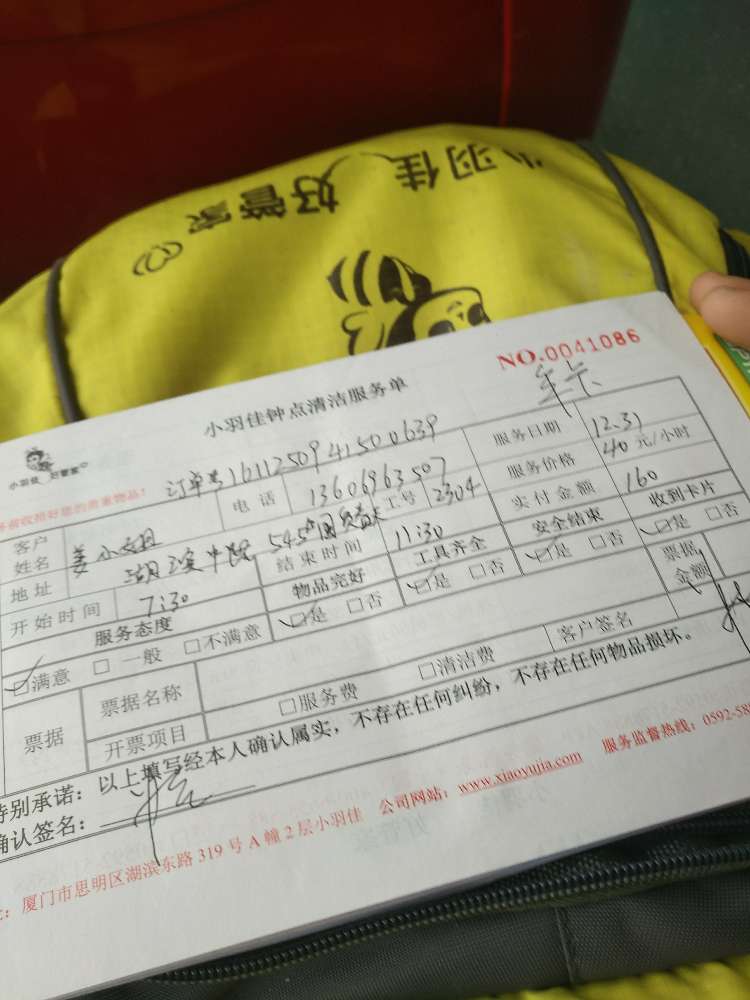 小羽佳 好管家
NO.0041086
小羽佳钟点清洁服务单
年卡
小羽佳 好管家
订单号161125094150 0639
服务日期 12.31
客户姓名 姜小姐 电话 13606963507
服务价格 40 元/小时
地址 工号 2304
实付金额 160
开始时间 7:30 结束时间 11:30
安全结束 收到卡片
服务态度 物品完好 工具齐全
是 否 是 否 是 否 是 否
满意 一般 不满意
票据 票据名称 服务费 清洁费 客户签名 票据金额
开票项目
特别承诺:以上填写经本人确认属实,不存在任何纠纷,不存在任何物品损坏。
确认签名:
厦门市思明区湖滨东路 319 号 A 幢 2 层小羽佳 公司网站:www.xiaoyujia.com 服务监督热线:0592-58